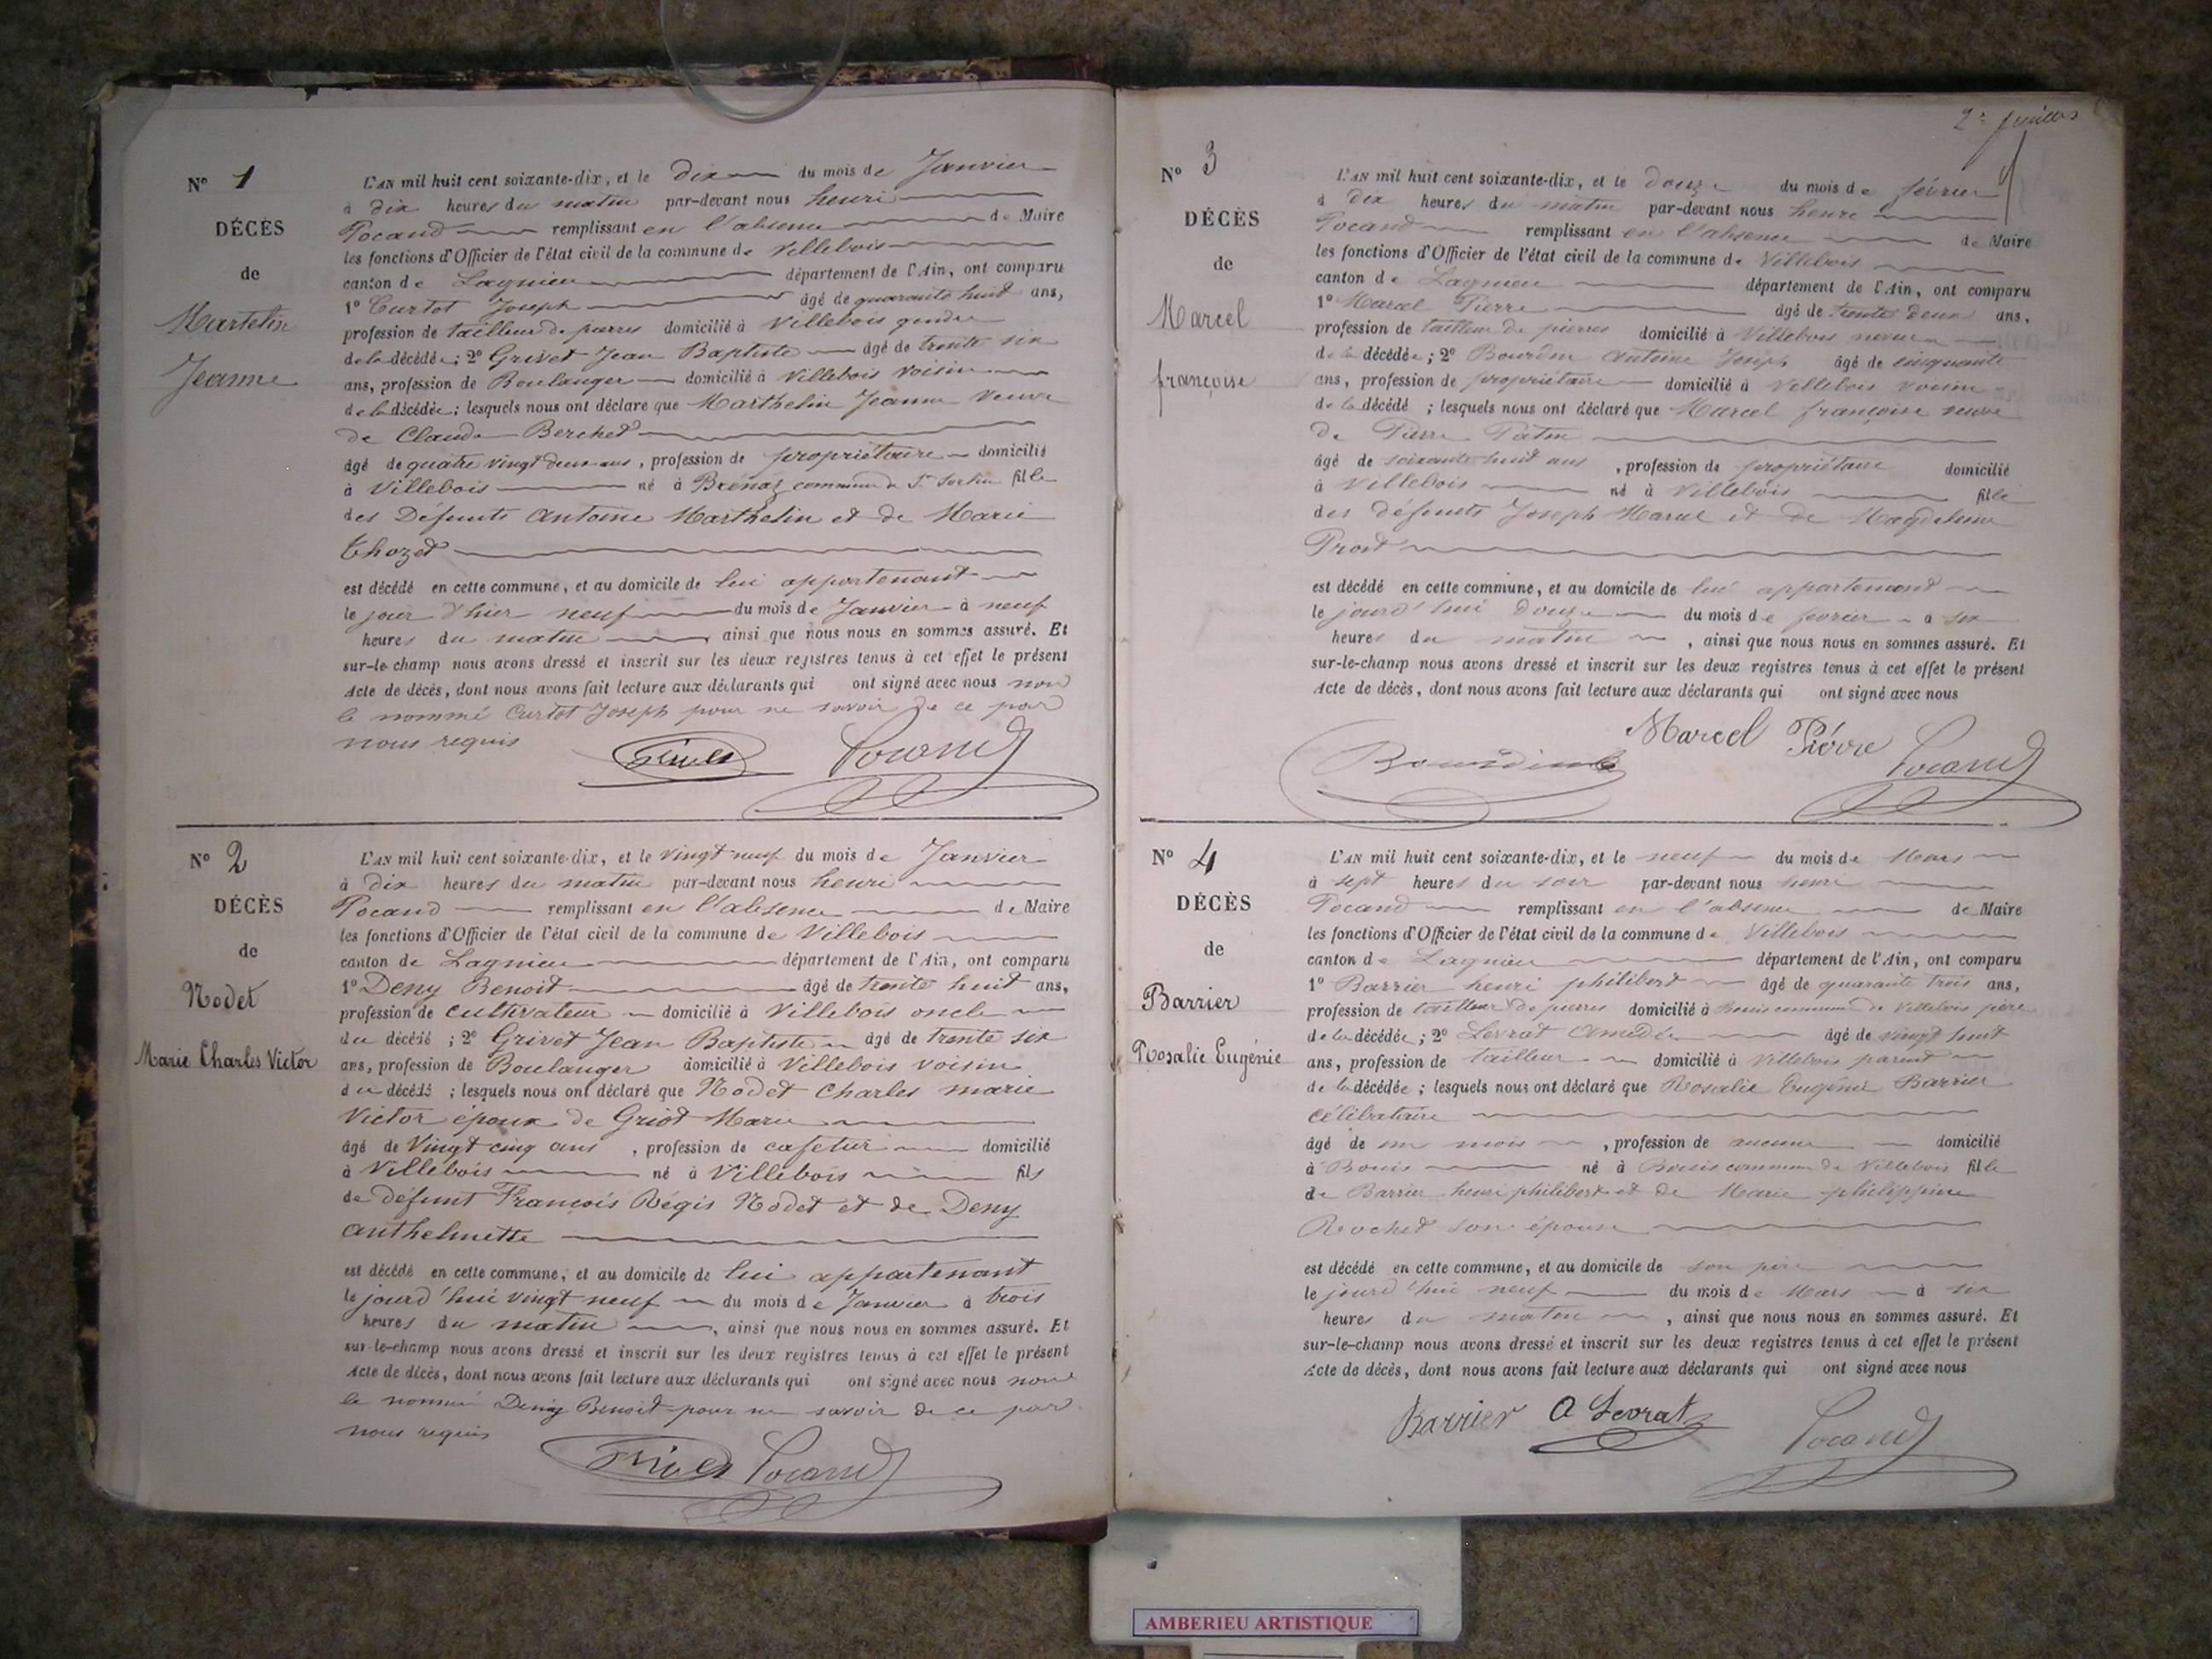 N° 1
DÉCÈS
de
Martelin
Jeanne
L'AN mil huit cent soixante-dix, et le dix du mois de Janvier
à dix heures du matin par-devant nous henri
Pocand remplissant en l'absence de Maire
les fonctions d'Officier de l'état civil de la commune de Villebois
canton de Lagnieu département de l'Ain, ont comparu
1° Curtot Joseph âgé de quarante huit ans,
profession de tailleur de pierres domicilié à Villebois gendre
de la décédée; 2° Grivet Jean Baptiste âgé de trente six
ans, profession de Boulanger domicilié à Villebois voisin
de la décédée; lesquels nous ont déclaré que Marthelin Jeanne veuve
de Claude Berchet
âgé de quatre vingt deux ans, profession de propriétaire domicilié
à Villebois né à Brénaz commune de St Sorlin fille
des Défunts Antoine Marthelin et de Marie
Chozet
est décédé en cette commune, et au domicile de lui appartenant
le jour d'hier neuf du mois de Janvier à neuf
heures du matin, ainsi que nous nous en sommes assuré. Et
sur-le-champ nous avons dressé et inscrit sur les deux registres tenus à cet effet le présent
Acte de décès, dont nous avons fait lecture aux déclarants qui ont signé avec nous non
le nommé Curtot Joseph pour ne savoir de ce par
nous requis
Grivet Pocand
N° 2
DÉCÈS
de
Nodet
Marie Charles Victor
L'AN mil huit cent soixante-dix, et le vingt neuf du mois de Janvier
à dix heures du matin par-devant nous henri
Pocand remplissant en l'absence de Maire
les fonctions d'Officier de l'état civil de la commune de Villebois
canton de Lagnieu département de l'Ain, ont comparu
1° Deny Benoit âgé de trente huit ans,
profession de cultivateur domicilié à Villebois oncle
du décédé; 2° Grivet Jean Baptiste âgé de trente six
ans, profession de Boulanger domicilié à Villebois voisin
du décédé; lesquels nous ont déclaré que Nodet Charles marie
Victor époux de Griot Marie
âgé de Vingt cinq ans, profession de cafetier domicilié
à Villebois né à Villebois fils
de défunt François Régis Nodet et de Deny
anthelmette
est décédé en cette commune, et au domicile de lui appartenant
le jourd'hui vingt neuf du mois de Janvier à trois
heures du matin, ainsi que nous nous en sommes assuré. Et
sur-le-champ nous avons dressé et inscrit sur les deux registres tenus à cet effet le présent
Acte de décès, dont nous avons fait lecture aux déclarants qui ont signé avec nous non
le nommé Deny Benoit pour ne savoir de ce par
nous requis
Grivet Pocand
N° 3
DÉCÈS
de
Marcel
françoise
L'AN mil huit cent soixante-dix, et le douze du mois de février
à dix heures du matin par-devant nous henri
Pocand remplissant en l'absence de Maire
les fonctions d'Officier de l'état civil de la commune de Villebois
canton de Lagnieu département de l'Ain, ont comparu
1° Marcel Pierre âgé de trente deux ans,
profession de tailleur de pierres domicilié à Villebois neveu
de la décédée; 2° Bourdin antoine Joseph âgé de cinquante
ans, profession de propriétaire domicilié à Villebois voisin
de la décédé; lesquels nous ont déclaré que Marcel françoise veuve
de Pierre
âgé de soixante huit ans, profession de propriétaire domicilié
à Villebois né à Villebois fille
des défunts Joseph Marcel et de Magdeleine
Prost
est décédé en cette commune, et au domicile de lui appartenant
le jourd'hui douze du mois de février à six
heures du matin, ainsi que nous nous en sommes assuré. Et
sur-le-champ nous avons dressé et inscrit sur les deux registres tenus à cet effet le présent
Acte de décès, dont nous avons fait lecture aux déclarants qui ont signé avec nous
Marcel Piérre Pocand
Bourdin
N° 4
DÉCÈS
de
Barrier
Rosalie Eugénie
L'AN mil huit cent soixante-dix, et le neuf du mois de Mars
à sept heures du soir par-devant nous henri
Pocand remplissant en l'absence de Maire
les fonctions d'Officier de l'état civil de la commune de Villebois
canton de Lagnieu département de l'Ain, ont comparu
1° Barrier henri philibert âgé de quarante trois ans,
profession de tailleur de pierres domicilié à Bouis commune de Villebois père
de la décédée; 2° Levrat Amédée âgé de vingt huit
ans, profession de tailleur domicilié à Villebois parent
de la décédée; lesquels nous ont déclaré que Rosalie Eugénie Barrier
célibataire
âgé de un mois, profession de aucune domicilié
à Bouis né à Bouis commune de Villebois fille
de Barrier henri philibert et de Marie philippine
Rochet son épouse
est décédé en cette commune, et au domicile de son père
le jourd'hui neuf du mois de Mars à six
heures du matin, ainsi que nous nous en sommes assuré. Et
sur-le-champ nous avons dressé et inscrit sur les deux registres tenus à cet effet le présent
Acte de décès, dont nous avons fait lecture aux déclarants qui ont signé avec nous
Barrier A Levrat Pocand
AMBERIEU ARTISTIQUE